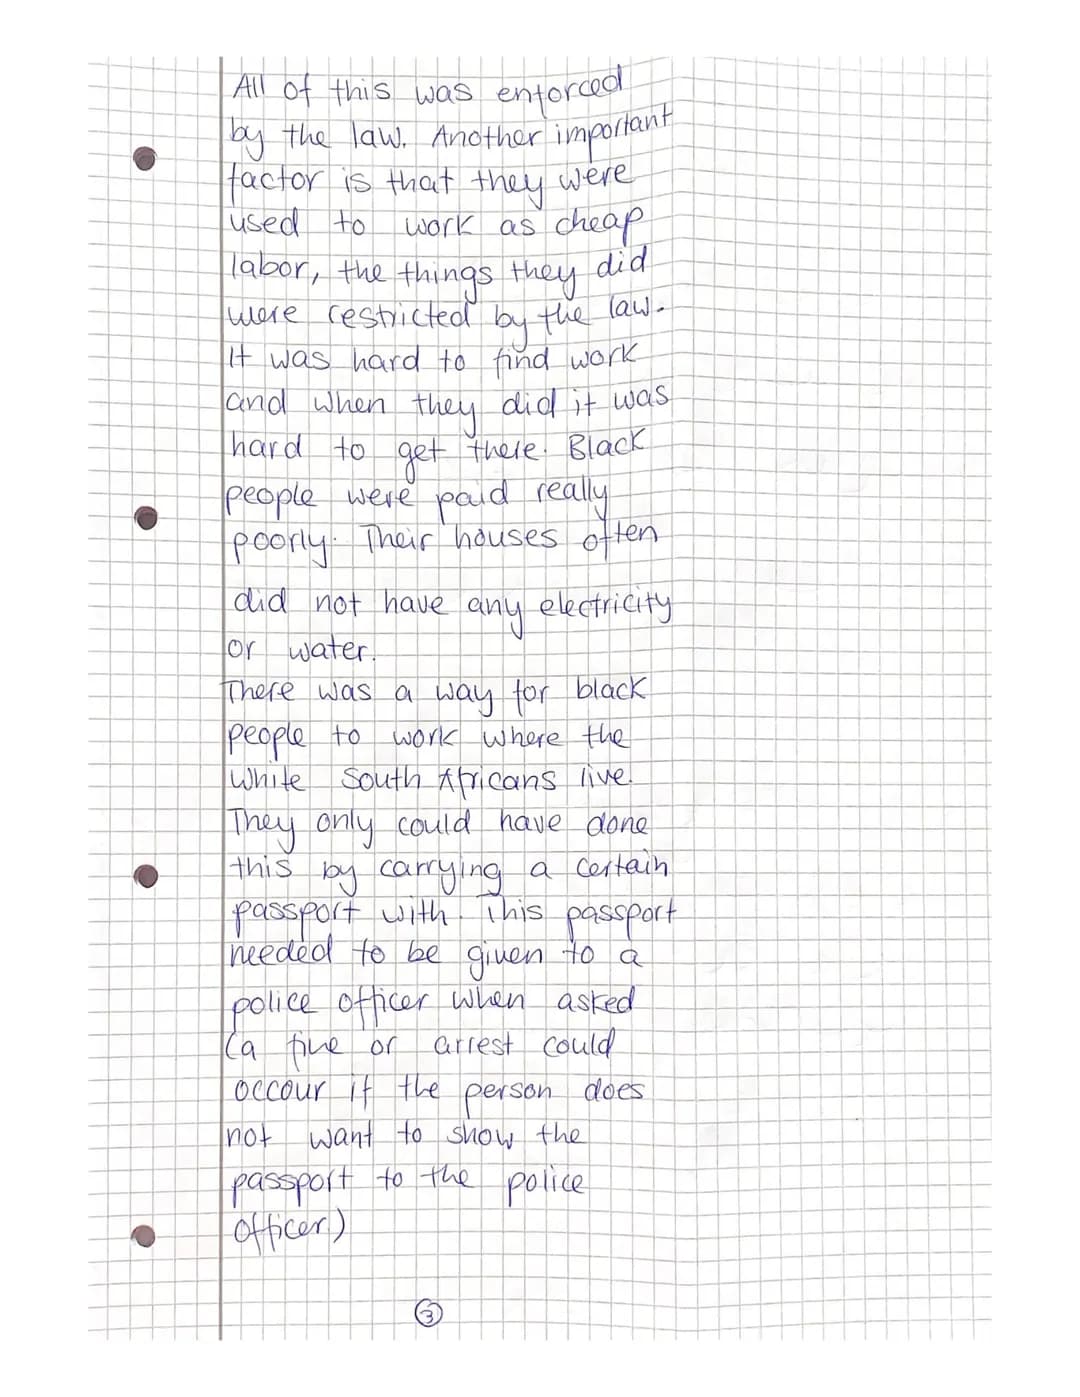 All of this was enforced
by the law. Another important
factor is that they were
used to work as cheap
labor, the things they did
were restricted by the law.
It was hard to find work
and when they did it was
hard to get there. Black
people were paid really
poorly. Their houses often
did not have any electricity
or water.
There was a way for black
people to work where the
white South Africans live.
They only could have done
this by carrying a certain
passport with. This passport
needed to be given to a
police officer when asked
(a fine or arrest could
occour if the person does
not want to show the
passport to the police
officer.)
3